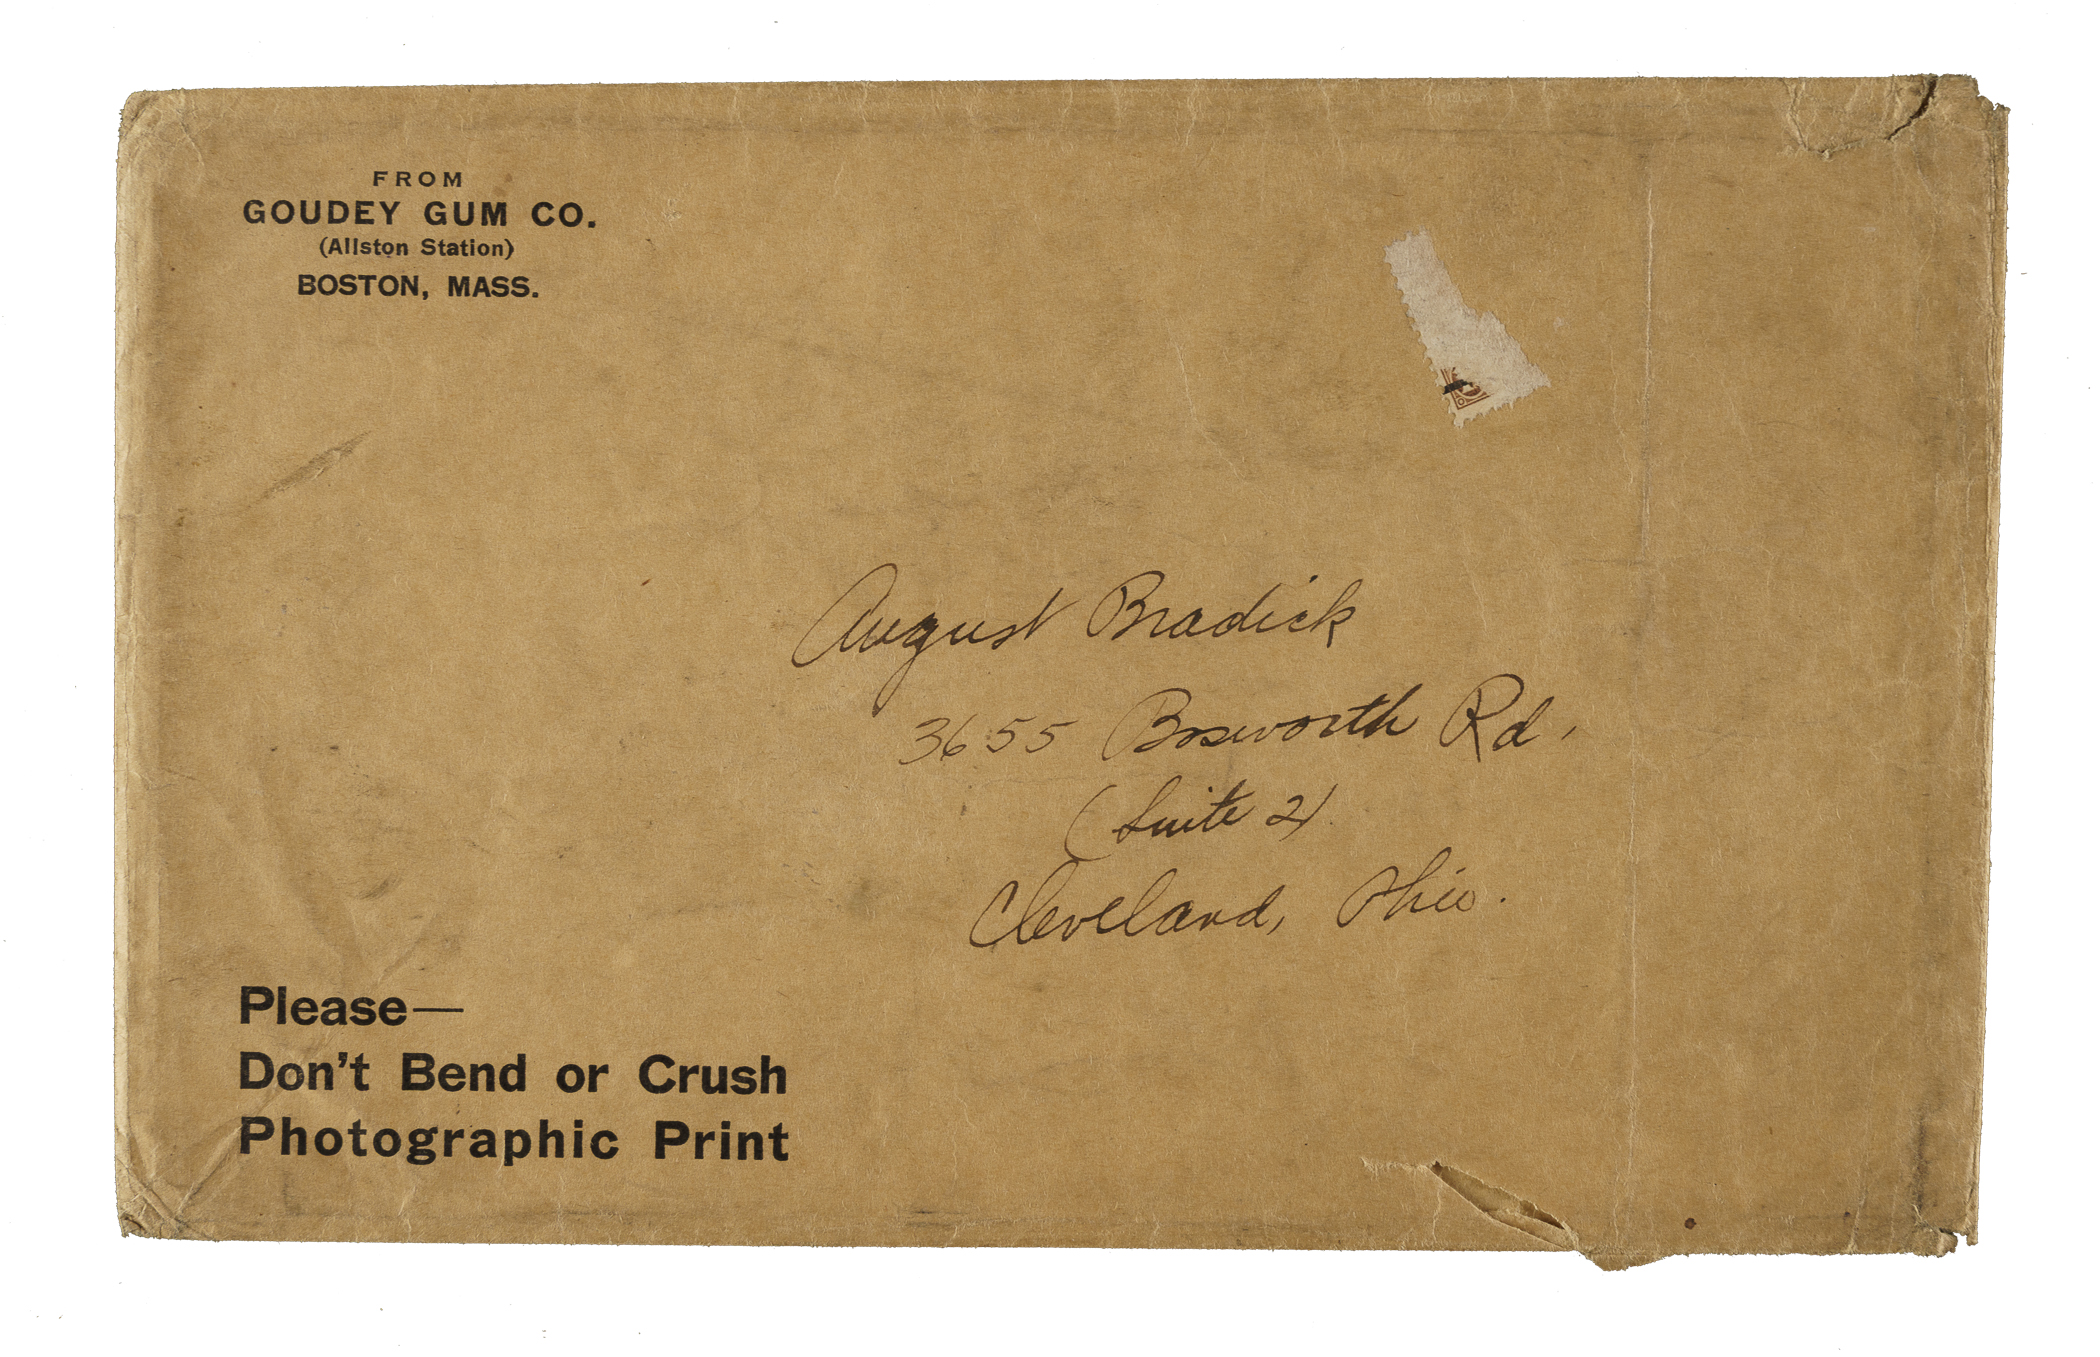 FROM
GOUDEY GUM CO.
(Allston Station)
BOSTON, MASS.
August Bradick
3655 Bosworth Rd.
(Suite 2)
Cleveland, Ohio.
Please—
Don't Bend or Crush
Photographic Print